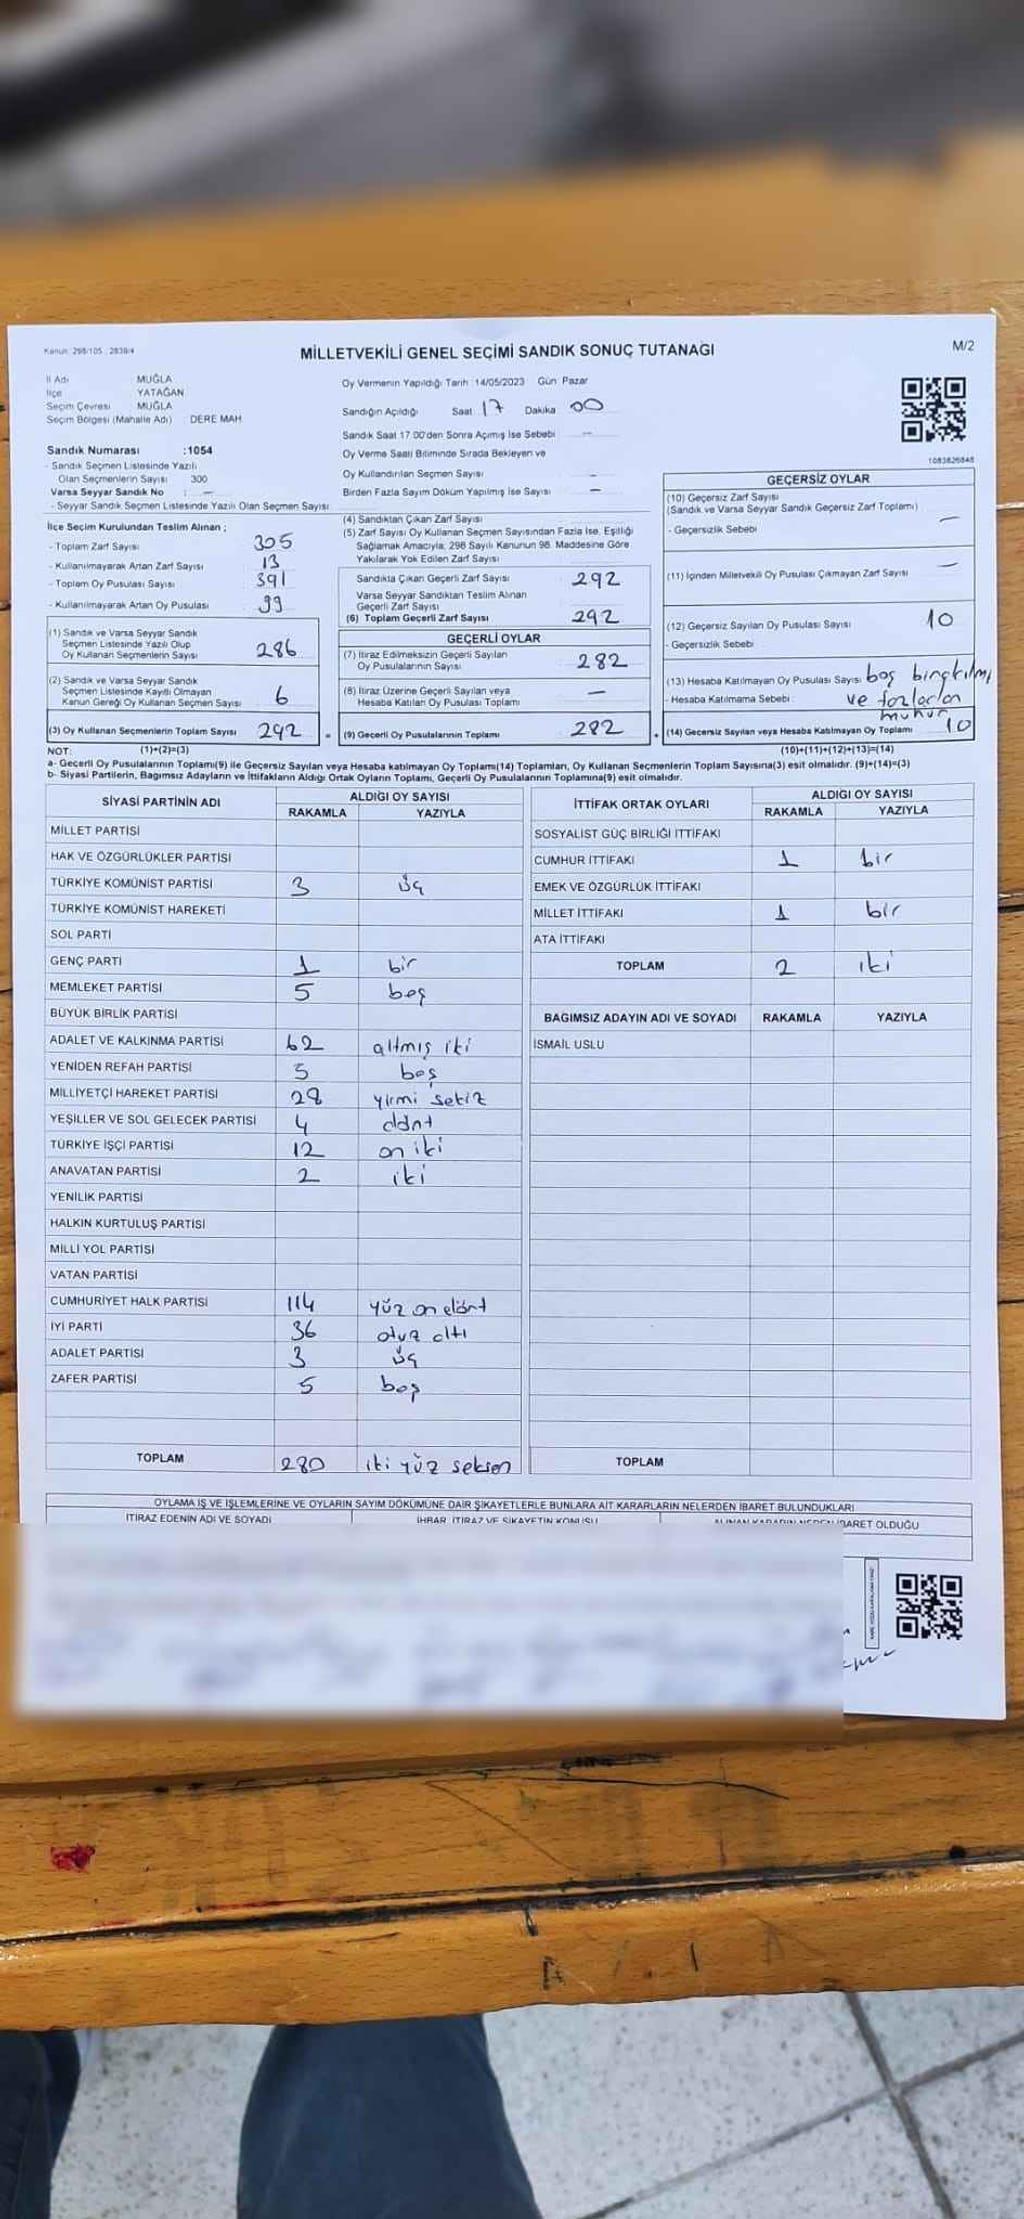 Kanun: 298/105 ; 2839/4
MİLLETVEKİLİ GENEL SEÇİMİ SANDIK SONUÇ TUTANAĞI
M/2
İl Adı MUĞLA
İlçe YATAĞAN
Seçim Çevresi MUĞLA
Seçim Bölgesi (Mahalle Adı) DERE MAH
Oy Vermenin Yapıldığı Tarih :14/05/2023 Gün Pazar
Sandığın Açıldığı Saat 17 Dakika 00
Sandık Saat 17.00'den Sonra Açımış İse Sebebi —
Oy Verme Saati Bitiminde Sırada Bekleyen ve
Oy Kullandırılan Seçmen Sayısı —
Birden Fazla Sayım Döküm Yapılmış İse Sayısı —
1083826848
Sandık Numarası :1054
- Sandık Seçmen Listesinde Yazılı
Olan Seçmenlerin Sayısı 300
Varsa Seyyar Sandık No : —
- Seyyar Sandık Seçmen Listesinde Yazılı Olan Seçmen Sayısı
İlçe Seçim Kurulundan Teslim Alınan ;
- Toplam Zarf Sayısı 305
- Kullanılmayarak Artan Zarf Sayısı 13
- Toplam Oy Pusulası Sayısı 391
- Kullanılmayarak Artan Oy Pusulası 99
(1) Sandık ve Varsa Seyyar Sandık
Seçmen Listesinde Yazılı Olup
Oy Kullanan Seçmenlerin Sayısı 286
(2) Sandık ve Varsa Seyyar Sandık
Seçmen Listesinde Kayıtlı Olmayan
Kanun Gereği Oy Kullanan Seçmen Sayısı 6
(3) Oy Kullanan Seçmenlerin Toplam Sayısı 292
(4) Sandıktan Çıkan Zarf Sayısı
(5) Zarf Sayısı Oy Kullanan Seçmen Sayısından Fazla İse, Eşitliği
Sağlamak Amacıyla; 298 Sayılı Kanunun 98. Maddesine Göre
Yakılarak Yok Edilen Zarf Sayısı
Sandıkta Çıkan Geçerli Zarf Sayısı 292
Varsa Seyyar Sandıktan Teslim Alınan
Geçerli Zarf Sayısı
(6) Toplam Geçerli Zarf Sayısı 292
GEÇERLİ OYLAR
(7) İtiraz Edilmeksizin Geçerli Sayılan
Oy Pusulalarının Sayısı 282
(8) İtiraz Üzerine Geçerli Sayılan veya
Hesaba Katılan Oy Pusulası Toplamı —
= (9) Geçerli Oy Pusulalarının Toplamı 282
GEÇERSİZ OYLAR
(10) Geçersiz Zarf Sayısı
(Sandık ve Varsa Seyyar Sandık Geçersiz Zarf Toplamı) —
- Geçersizlik Sebebi
(11) İçinden Milletvekili Oy Pusulası Çıkmayan Zarf Sayısı —
(12) Geçersiz Sayılan Oy Pusulası Sayısı 10
- Geçersizlik Sebebi
(13) Hesaba Katılmayan Oy Pusulası Sayısı boş bırakılmış
- Hesaba Katılmama Sebebi : ve fazladan
mühür
+ (14) Geçersiz Sayılan veya Hesaba Katılmayan Oy Toplamı 10
NOT: (1)+(2)=(3) (10)+(11)+(12)+(13)=(14)
a- Geçerli Oy Pusulasının Toplamı(9) ile Geçersiz Sayılan veya Hesaba katılmayan Oy Toplamı(14) Toplamları, Oy Kullanan Seçmenlerin Toplam Sayısına(3) eşit olmalıdır. (9)+(14)=(3)
b- Siyasi Partilerin, Bağımsız Adayların ve İttifakların Aldığı Ortak Oyların Toplamı, Geçerli Oy Pusulalarının Toplamına(9) eşit olmalıdır.
SİYASİ PARTİNİN ADI ALDIĞI OY SAYISI
RAKAMLA YAZIYLA
MİLLET PARTİSİ
HAK VE ÖZGÜRLÜKLER PARTİSİ
TÜRKİYE KOMÜNİST PARTİSİ 3 üç
TÜRKİYE KOMÜNİST HAREKETİ
SOL PARTİ
GENÇ PARTİ 1 bir
MEMLEKET PARTİSİ 5 beş
BÜYÜK BİRLİK PARTİSİ
ADALET VE KALKINMA PARTİSİ 62 altmış iki
YENİDEN REFAH PARTİSİ 5 beş
MİLLİYETÇİ HAREKET PARTİSİ 28 yirmi sekiz
YEŞİLLER VE SOL GELECEK PARTİSİ 4 dört
TÜRKİYE İŞÇİ PARTİSİ 12 on iki
ANAVATAN PARTİSİ 2 iki
YENİLİK PARTİSİ
HALKIN KURTULUŞ PARTİSİ
MİLLİ YOL PARTİSİ
VATAN PARTİSİ
CUMHURİYET HALK PARTİSİ 114 yüz on dört
İYİ PARTİ 36 otuz altı
ADALET PARTİSİ 3 üç
ZAFER PARTİSİ 5 beş
TOPLAM 280 iki yüz seksen
İTTİFAK ORTAK OYLARI ALDIĞI OY SAYISI
RAKAMLA YAZIYLA
SOSYALİST GÜÇ BİRLİĞİ İTTİFAKI
CUMHUR İTTİFAKI 1 bir
EMEK VE ÖZGÜRLÜK İTTİFAKI
MİLLET İTTİFAKI 1 bir
ATA İTTİFAKI
TOPLAM 2 iki
BAĞIMSIZ ADAYIN ADI VE SOYADI RAKAMLA YAZIYLA
İSMAİL USLU
TOPLAM
OYLAMA İŞ VE İŞLEMLERİNE VE OYLARIN SAYIM DÖKÜMÜNE DAİR ŞİKAYETLERLE BUNLARA AİT KARARLARIN NELERDEN İBARET BULUNDUKLARI
İTİRAZ EDENİN ADI VE SOYADI İHBAR, İTİRAZ VE ŞİKAYETİN KONUSU ALINAN KARARIN NEDEN İBARET OLDUĞU